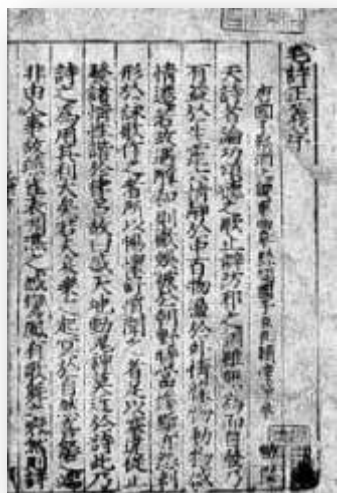 毛詩正義序
國子祭酒上護軍曲阜縣開國子臣孔穎達等奉 勅
夫詩者論功頌德之歌止僻防邪之訓雖無為而自發乃
有益於生靈六情靜於中百物盪於外情緣物動物感
情遷若政遇醇和則歡娛被於朝野時當慘黷亦怨刺
形於詠歌作之者所以暢懷舒憤聞之者足以塞違從正
發諸情性諧於律呂故曰感天地動鬼神莫近於詩此乃
詩之為用其利大矣若夫哀樂之起冥於自然喜怒之端
非由人事故燕雀表啁噍之感鸞鳳有歌舞之容然則詩